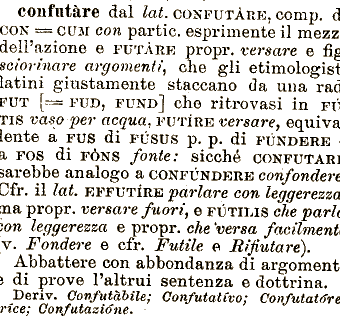 confutàre dal lat. CONFUTÀRE, comp. d
CON = CUM con partic. esprimente il mezz
dell'azione e FUTÀRE propr. versare e fig
sciorinare argomenti, che gli etimologist
latini giustamente staccano da una rad
FUT [= FUD, FUND] che ritrovasi in FÚ
TIS vaso per acqua, FUTÍRE versare, equiva
dente a FUS di FÚSUS p. p. di FÚNDERE
a FOS di FÒNS fonte: sicché CONFUTARE
sarebbe analogo a CONFÚNDERE confondere
Cfr. il lat. EFFUTÍRE parlare con leggerezza
ma propr. versare fuori, e FÚTILIS che parla
con leggerezza e propr. che versa facilment
v. Fondere e cfr. Futile e Rifiutare).
Abbattere con abbondanza di argoment
e di prove l'altrui sentenza e dottrina.
Deriv. Confutàbile; Confutatívo; Confutatóre
rice; Confutazióne.